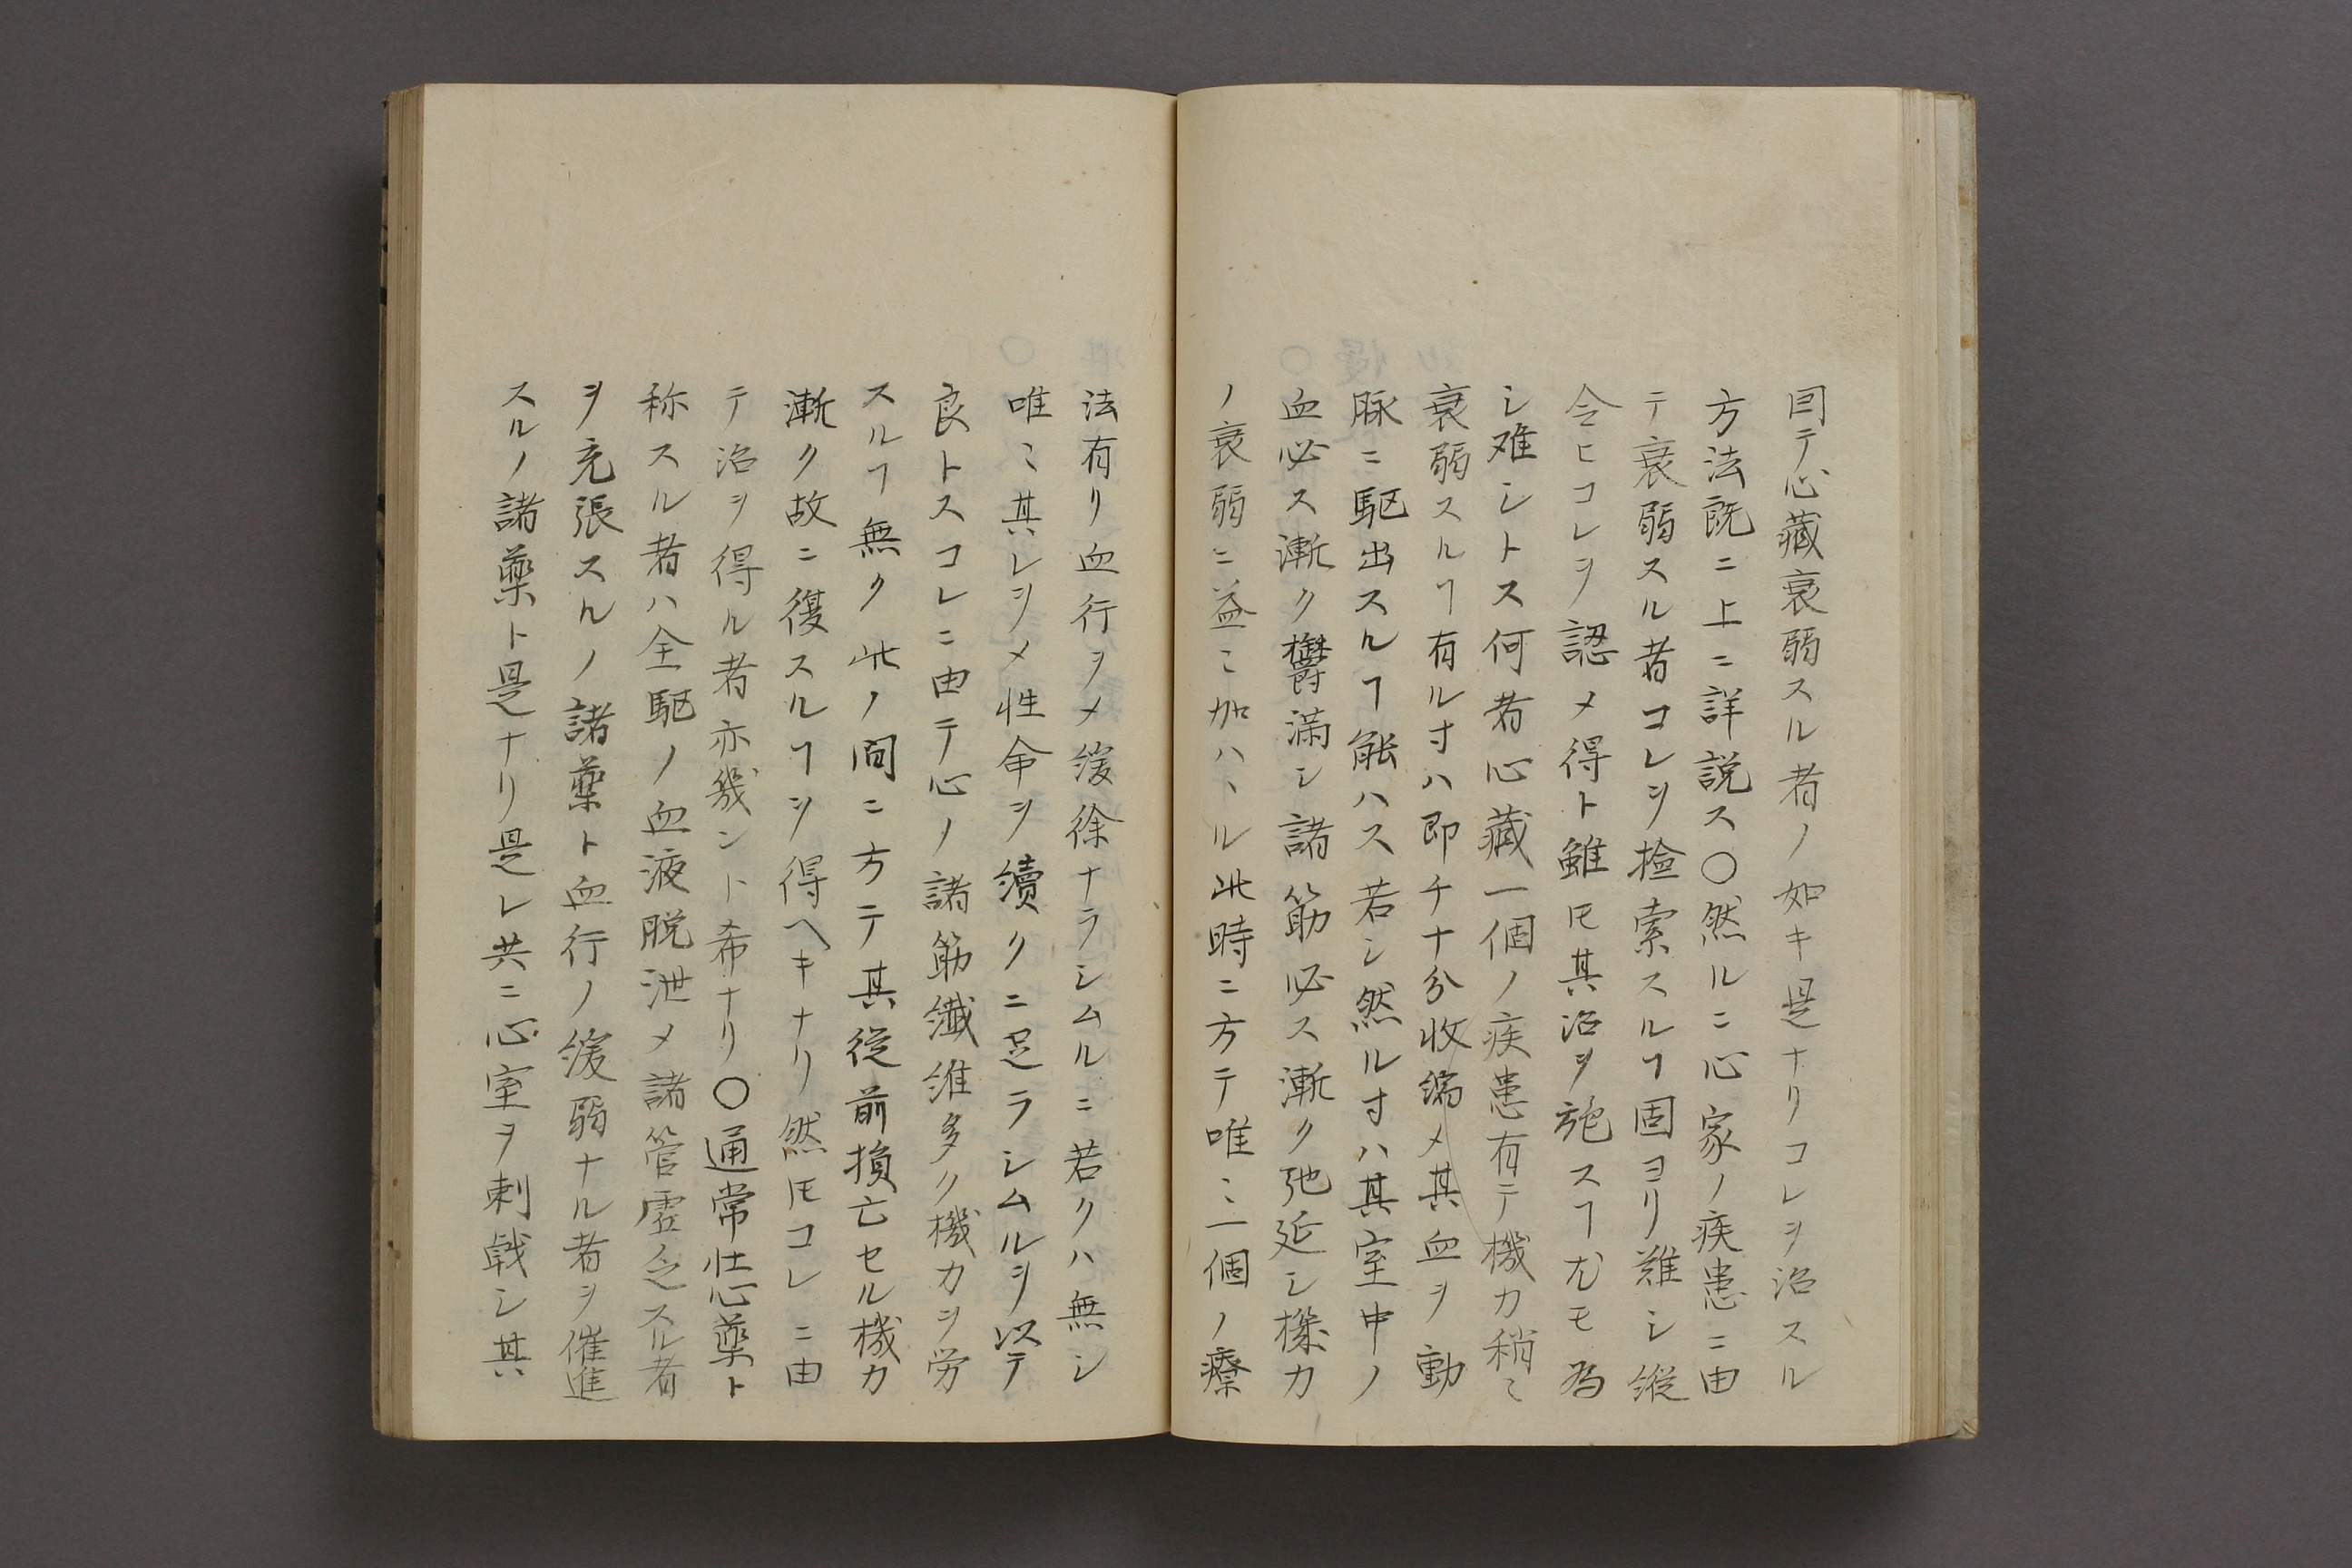 因テ心藏衰弱スル者ノ如キ是ナリコレヲ治スル
方法既ニ上ニ詳説ス〇然ルニ心家ノ疾患ニ由
テ衰弱スル者コレヲ撿索スルヿ固ヨリ難シ縦
令ヒコレヲ認メ得ト雖𪜈其治ヲ施スヿ尤モ為
シ难シトス何者心藏一個ノ疾患有テ機力稍〻
衰弱スルヿ有ル寸ハ即チ十分收縮メ其血ヲ動
脉ニ駆出スルヿ能ハス若シ然ル寸ハ其室中ノ
血必ス漸ク欝滿シ諸筋必ス漸ク弛延シ機力
ノ衰弱ニ益〻加ハヽル此時ニ方テ唯〻一個ノ療
法有リ血行ヲメ緩徐ナラシムルニ若クハ無シ
唯〻其レヲメ性命ヲ續クニ足ラシムルヲ以テ
良トスコレニ由テ心ノ諸筋纖維多ク機力ヲ労
スルヿ無ク此ノ間ニ方テ其從前損亡セル機力
漸ク故ニ復スルヿヲ得ヘキナリ然𪜈コレニ由
テ治ヲ得ル者亦幾ント希ナリ〇通常壮心藥ト
称スル者ハ全駆ノ血液脱泄メ諸管虚乏スル者
ヲ充張スルノ諸藥ト血行ノ緩弱ナル者ヲ催進
スルノ諸藥ト是ナリ是レ共ニ心室ヲ刺戟シ其